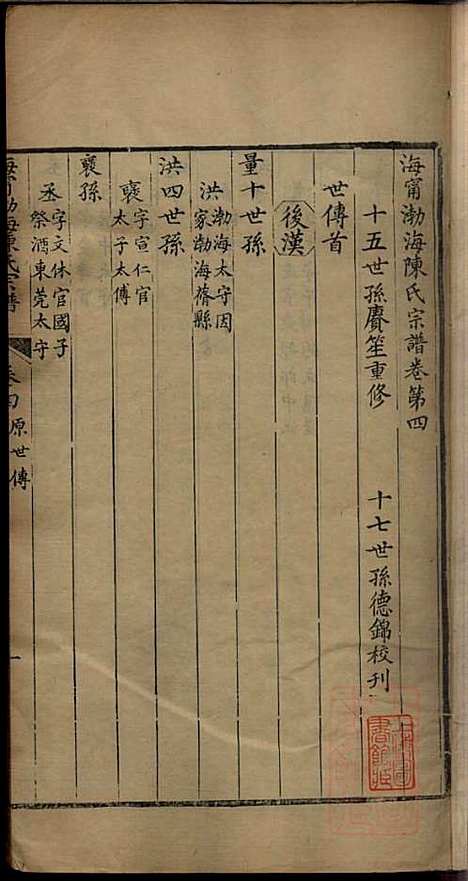 海甯渤海陳氏宗譜卷第四
十五世孫賡笙重修
十七世孫德錦校刊
世傳首
後漢
量十世孫
洪
渤海太守因
家渤海蓨縣
洪四世孫
襃
字宣仁官
太子太傅
襃孫
丞
字文休官國子
祭酒東莞太守
海甯渤海陳氏宗譜
卷四
原世傳
一
書館